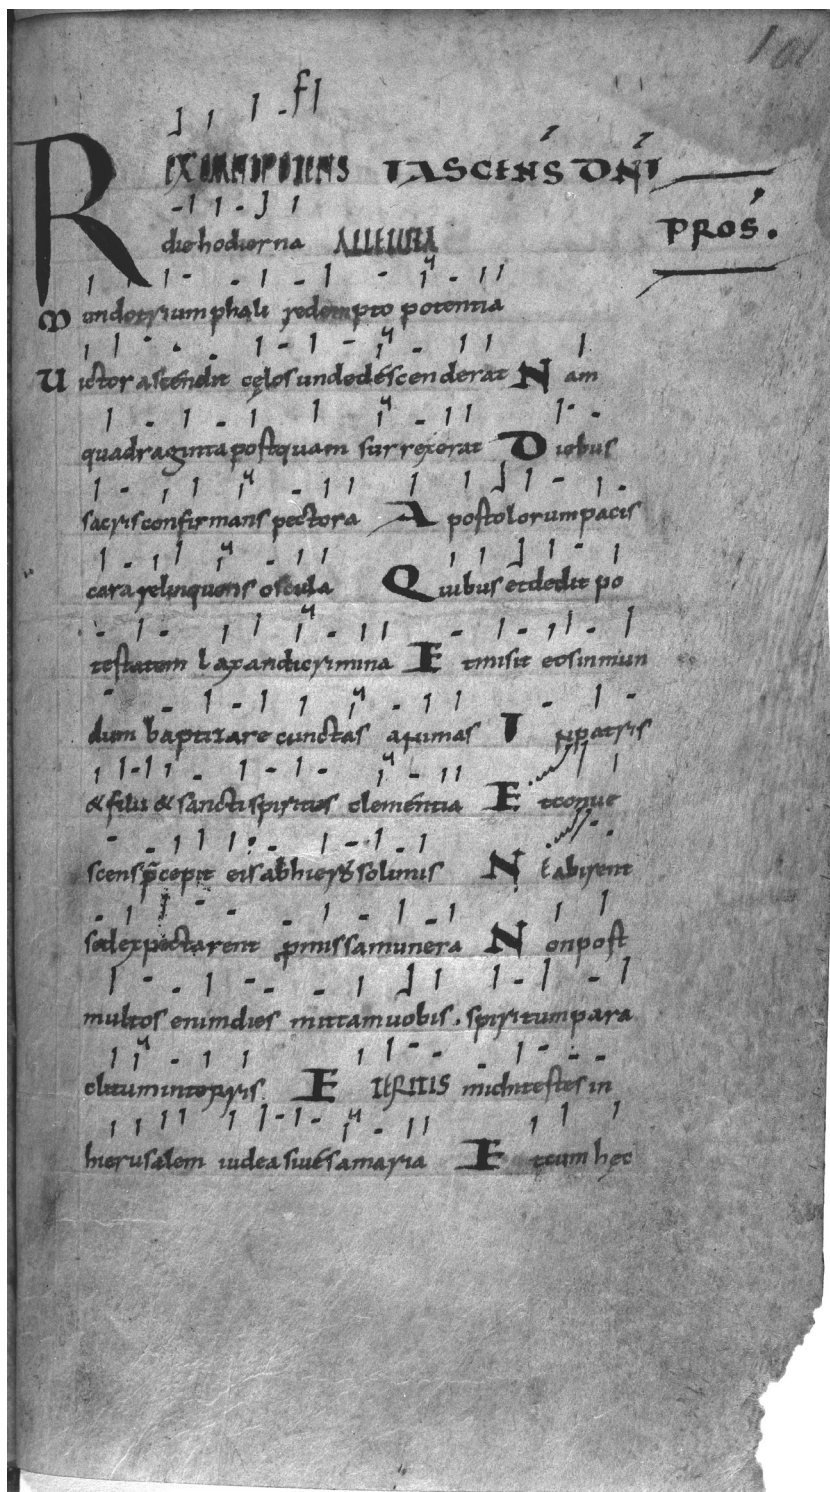 101
REX OMNIPOTENS IN ASCENS DNI
die hodierna ALLELUIA PROS.
Mundo triumphali redempto potentia
Uictor ascendit cęlos unde descenderat Nam
quadraginta postquam surrexerat Diebus
sacris confirmans pectora Apostolorum pacis
cara relinquens oscula Quibus et dedit po
testatem laxandi crimina Et misit eos in mun
dum baptizare cunctas animas In patris
& filii & sancti spiritus clementia Et conue
scens p̄cepit eis ab hierosolimis Ne abirent
sed expectarent promissa munera Non post
multos enim dies mittam uobis. spiritum para
clitum in terris. ET ERITIS michi testes in
hierusalem iudea siue samaria Et cum hęc